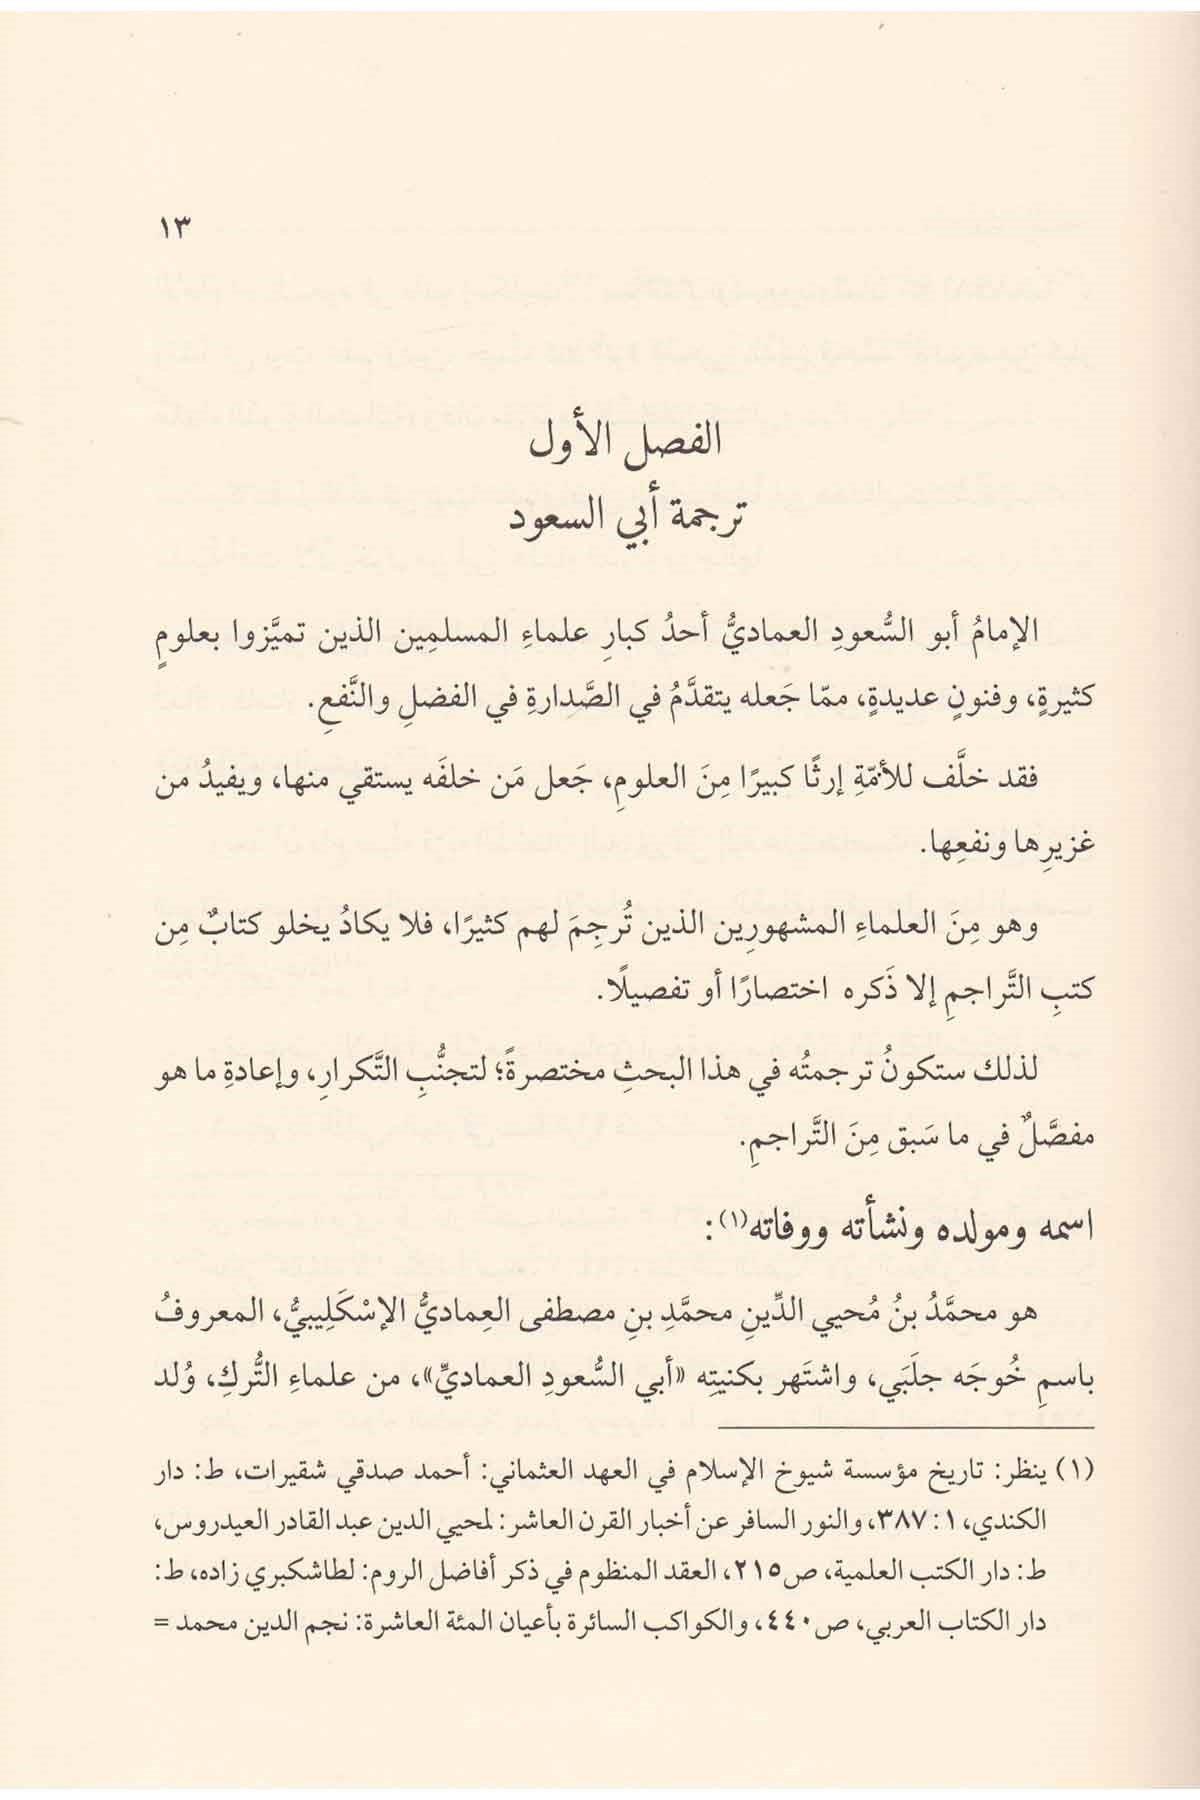 ١٣
الفصل الأول
ترجمة أبي السعود
الإمامُ أبو السُّعودِ العماديُّ أحدُ كبارِ علماءِ المسلمِين الذين تميَّزوا بعلومٍ
كثيرةٍ، وفنونٍ عديدةٍ، ممّا جَعله يتقدَّمُ في الصَّدارةِ في الفضلِ والنَّفعِ.
فقد خلَّف للأمّةِ إرثًا كبيرًا مِنَ العلومِ، جَعل مَن خلفَه يستقي منها، ويفيدُ من
غزيرِها ونفعِها.
وهو مِنَ العلماءِ المشهورِين الذين تُرجِمَ لهم كثيرًا، فلا يكادُ يخلو كتابٌ مِن
كتبِ التَّراجمِ إلا ذَكره اختصارًا أو تفصيلًا.
لذلك ستكونُ ترجمتُه في هذا البحثِ مختصرةً؛ لتجنُّبِ التَّكرارِ، وإعادةِ ما هو
مفصَّلٌ في ما سَبق مِنَ التَّراجمِ.
اسمه ومولده ونشأته ووفاته(١):
هو محمَّدُ بنُ مُحيي الدِّينِ محمَّدِ بنِ مصطفى العِماديُّ الإسْكَلِيبيُّ، المعروفُ
باسمِ خُوجَه جلَبَي، واشتَهر بكنيتِه «أبي السُّعودِ العماديِّ»، من علماءِ التُّركِ، وُلد
(١) ينظر: تاريخ مؤسسة شيوخ الإسلام في العهد العثماني: أحمد صدقي شقيرات، ط: دار
الكندي، ١: ٣٨٧، والنور السافر عن أخبار القرن العاشر: لمحيي الدين عبد القادر العيدروس،
ط: دار الكتب العلمية، ص٢١٥، العقد المنظوم في ذكر أفاضل الروم: لطاشكبري زاده، ط:
دار الكتاب العربي، ص٤٤٠، والكواكب السائرة بأعيان المئة العاشرة: نجم الدين محمد =